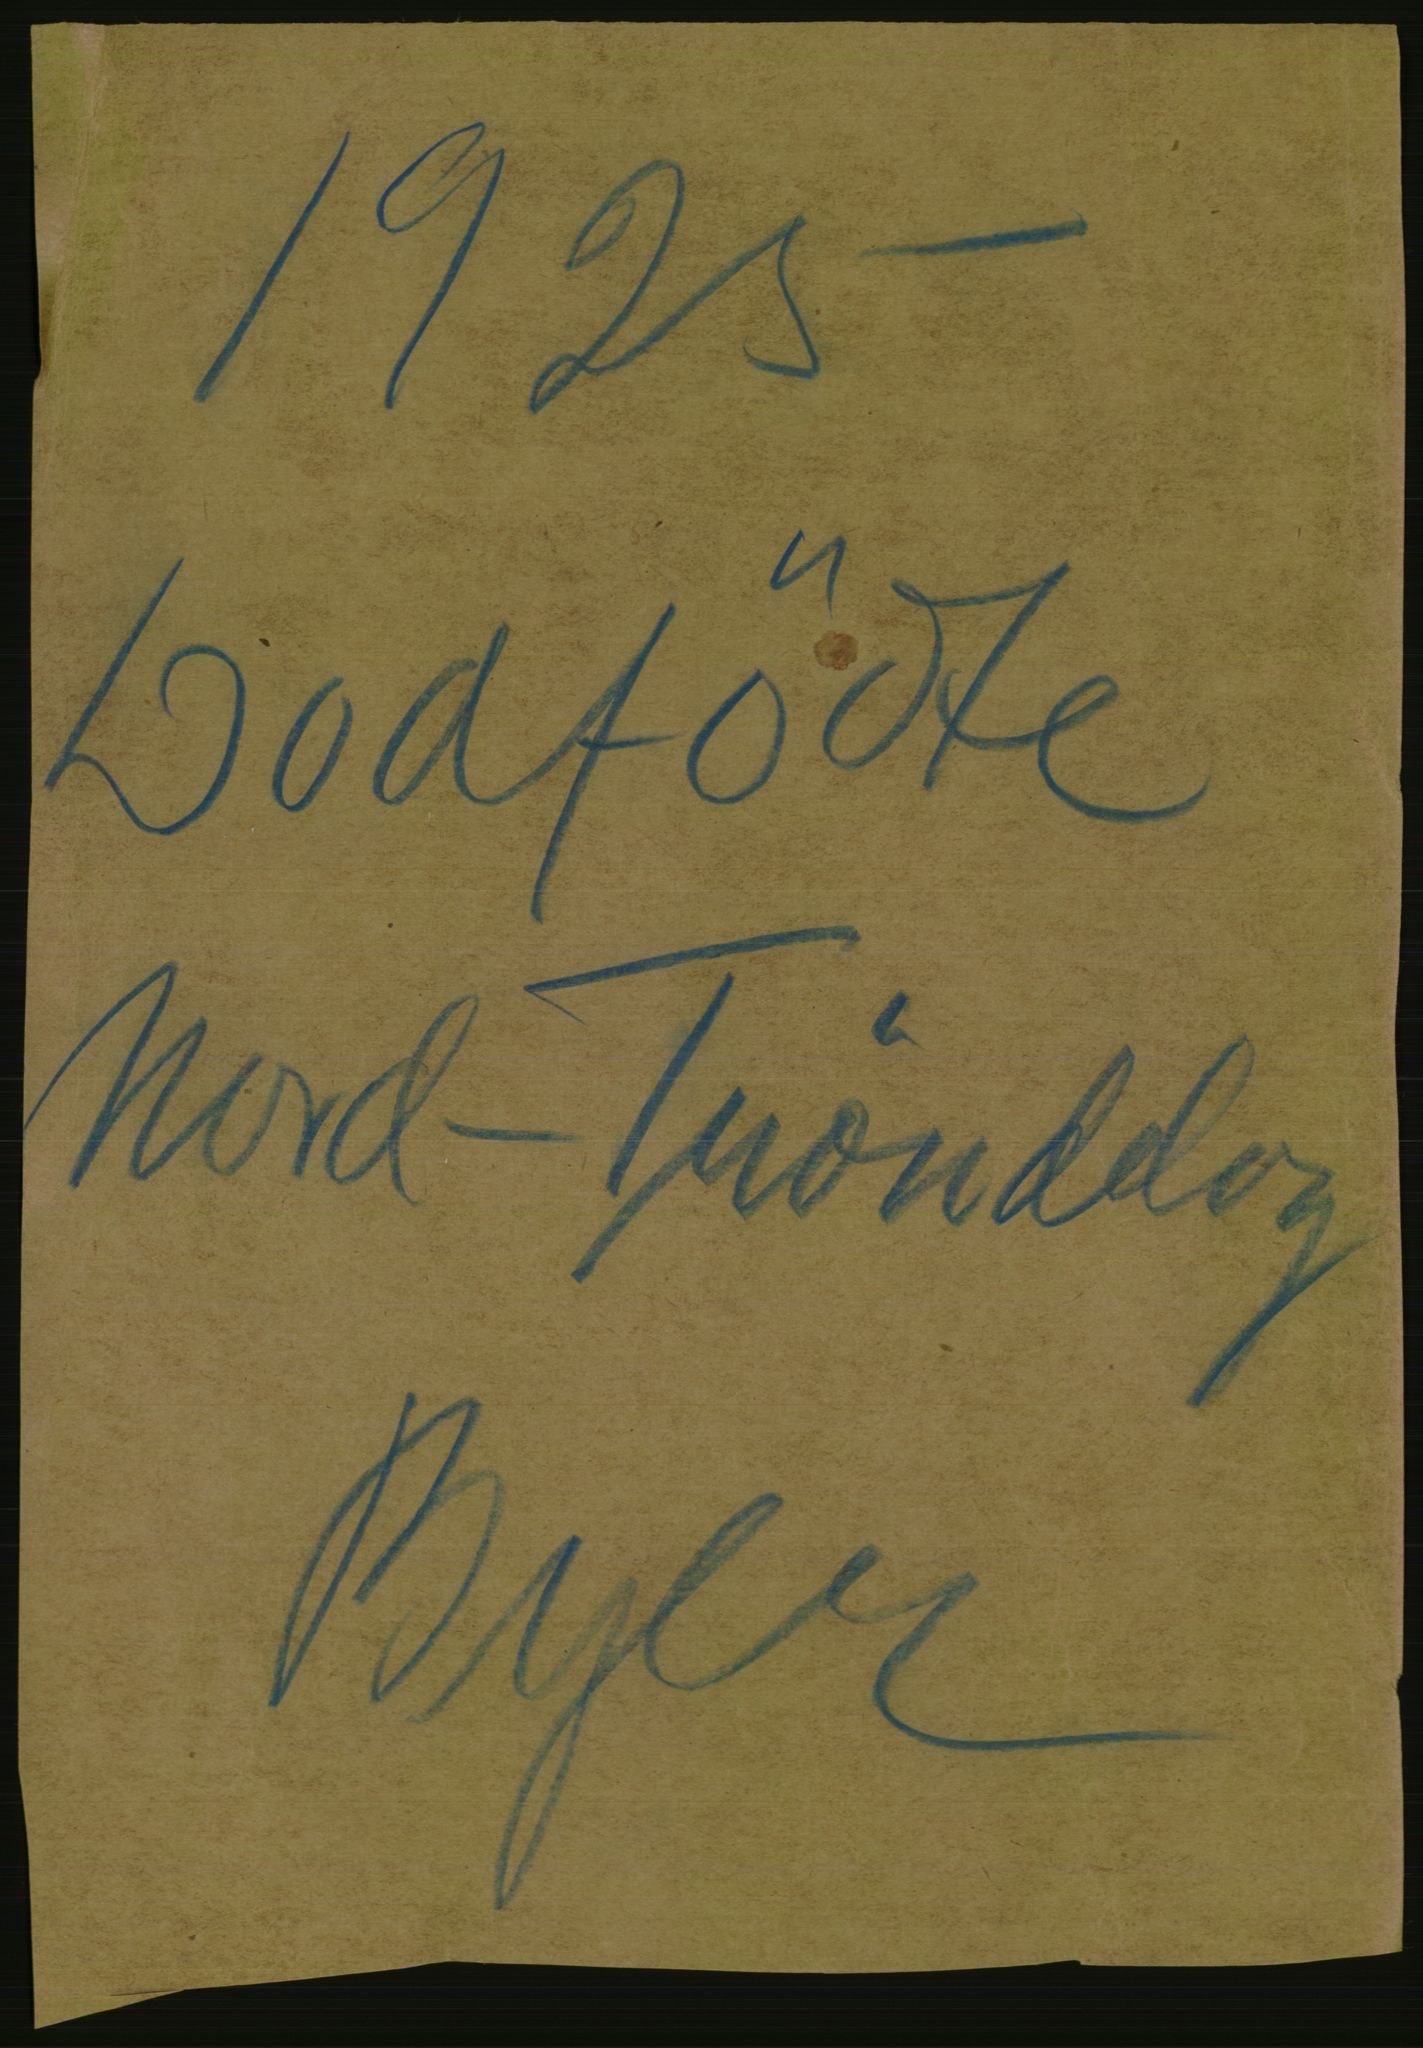 1925
Dodfödte
Nord-Trönddlag
Byer